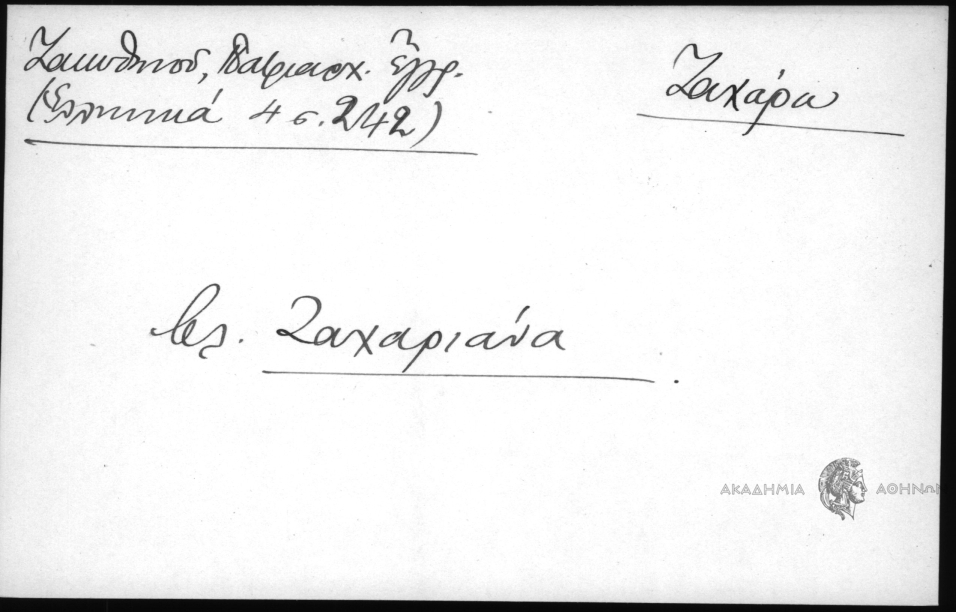 Ζακυθηνού, Πατριαρχ. Ἔγγρ.
(Ἑλληνικά 4 σ. 242)
Ζαχάρω
βλ. Ζαχαριάνα.
ΑΚΑΔΗΜΙΑ ΑΘΗΝΩΝ